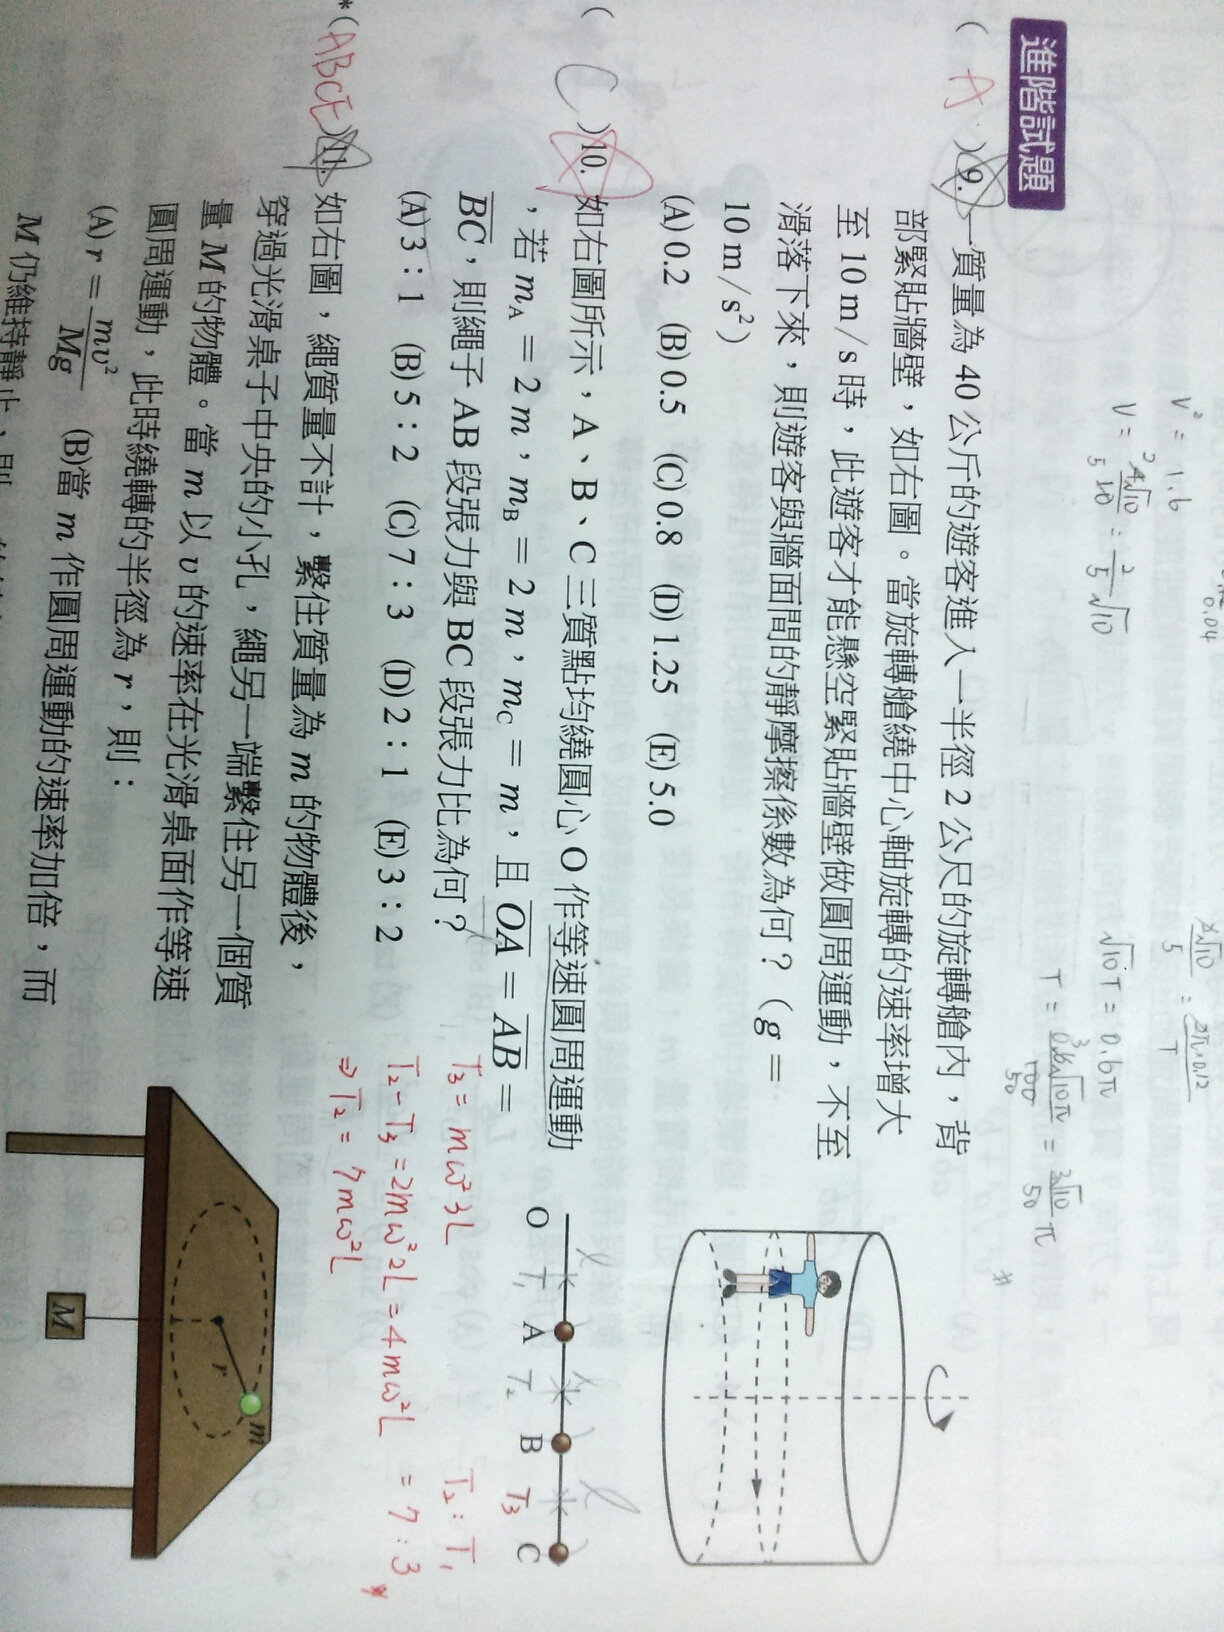 V² = 1.6
0.04
V = 2 4√10 / 5 10 = 2/5 √10
√10 T = 0.6π
進階試題
( A )9. 一質量為 40 公斤的遊客進入一半徑 2 公尺的旋轉艙內，背
部緊貼牆壁，如右圖。當旋轉艙繞中心軸旋轉的速率增大
至 10 m / s 時，此遊客才能懸空緊貼牆壁做圓周運動，不至
滑落下來，則遊客與牆面間的靜摩擦係數為何？（g =
10 m / s²）
(A) 0.2 (B) 0.5 (C) 0.8 (D) 1.25 (E) 5.0
( C )10. 如右圖所示，A、B、C 三質點均繞圓心 O 作等速圓周運動
，若 mA = 2 m，mB = 2 m，mC = m，且 OA = AB =
BC，則繩子 AB 段張力與 BC 段張力比為何？
(A) 3：1 (B) 5：2 (C) 7：3 (D) 2：1 (E) 3：2
O A B C
ℓ ℓ ℓ
T₁ T₂ T₃
T₃ = mω²3L
T₂ - T₃ = 2mω²2L = 4mω²L
⇒ T₂ = 7mω²L
T₂ : T₁
= 7 : 3
*( ABCE )11. 如右圖，繩質量不計，繫住質量為 m 的物體後，
穿過光滑桌子中央的小孔，繩另一端繫住另一個質
量 M 的物體。當 m 以 v 的速率在光滑桌面作等速
圓周運動，此時繞轉的半徑為 r，則：
(A) r = mv² / Mg (B)當 m 作圓周運動的速率加倍，而
M 仍維持靜止，則
r
m
M